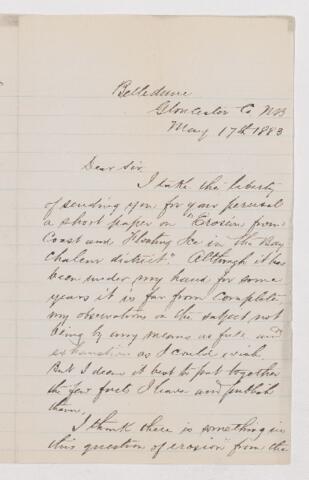 Belledune
Gloucester Co NB
May 17th 1883
Dear Sir
I take the liberty
of sending you for your perusal
a short paper on "Erosion from
Coast and Floating Ice in the Bay
Chaleur district". Although it has
been under my hand for some
years it is far from complete
my observations on the subject not
being by any means as full and
exhaustive as I could wish.
But I deem it best to put together
the few facts I have and publish
them.
I think there is something in
this question of erosion from the